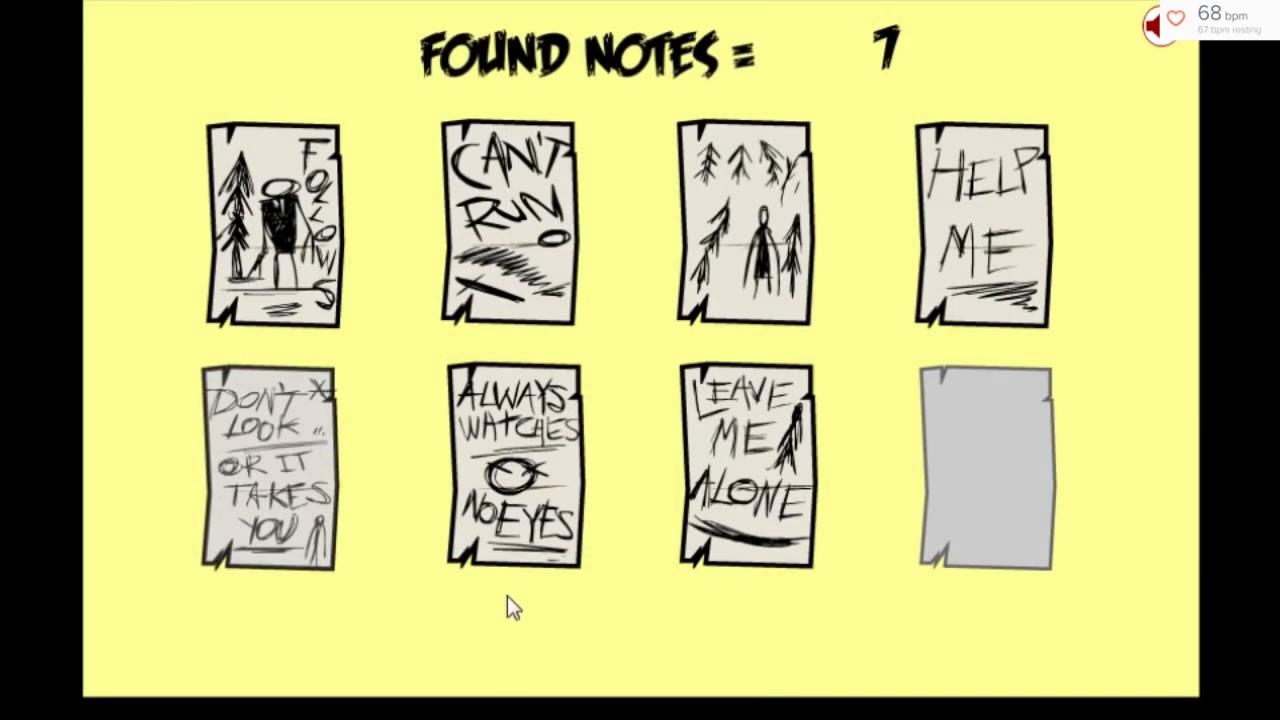 68 bpm
67 bpm resting
FOUND NOTES = 7
FOLLOWS
CAN'T
RUN
HELP
ME
DON'T
LOOK ..
OR IT
TAKES
YOU
ALWAYS
WATCHES
NO EYES
LEAVE
ME
ALONE